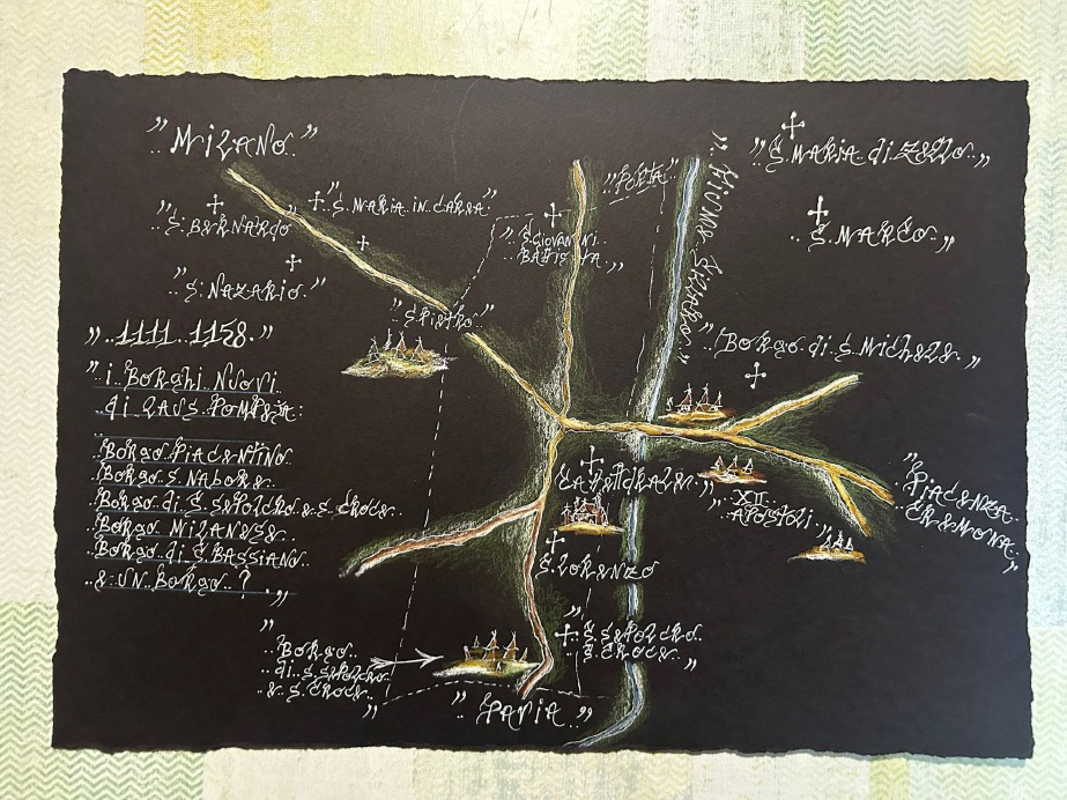 "Milano"
"S. Maria di Zello"
"S. Maria in Carsa"
"S. Bernardo
"S. Giovanni
Battista"
"Porta"
S. Marco"
"S. Nazario"
"S. Pietro"
"1111 1158"
"i Borghi Nuovi
di Laus Pompeia:
Borgo Piacentino
Borgo S. Nabore
Borgo di S. Sepolcro & S. Croce
Borgo Milanese
Borgo di S. Bassiano
& un Borgo ?"
"Borgo di S. Michele"
"Piacenza
Cremona"
Cattedrale"
"XII
Apostoli"
S. Lorenzo
"S. Sepolcro
S. Croce"
"Borgo
di S. Sepolcro
& S. Croce"
"Pavia"